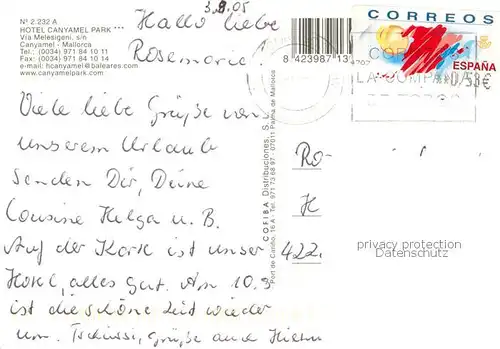 Nº 2.232 A
HOTEL CANYAMEL PARK ***
Via Melesigeni, s/n
Canyamel - Mallorca
Tel.: (0034) 971 84 10 11
Fax: (0034) 971 84 10 14
e-mail: hcanyamel@baleares.com
www.canyamelpark.com
3.9.05
Hallo liebe
Rosemarie!
Viele liebe Grüße von
unserem Urlaub
senden Dir, Deine
Cousine Helga u. B.
Auf der Karte ist unser
Hotel, alles gut. Am 10.9
ist die schöne Zeit wieder
um. Tschüssi, Grüße auch
8 423987 13
COFIBA Distribuciones, S.
Port de Cariño, 16 A - Tel. 971 73 68 97 - 07011 Palma de Mallorca
CORREOS
ESPAÑA
0,53€
CORREOS
LA COMPA
Ro-
H
422
privacy protection
Datenschutz